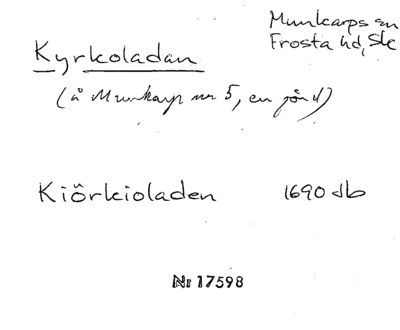 Munkarps sn
Frosta hd, Sk
Kyrkoladan
(å Munkarp nr 5, en gård)
Kiörkioladen 1690 Jb
Nr 17598